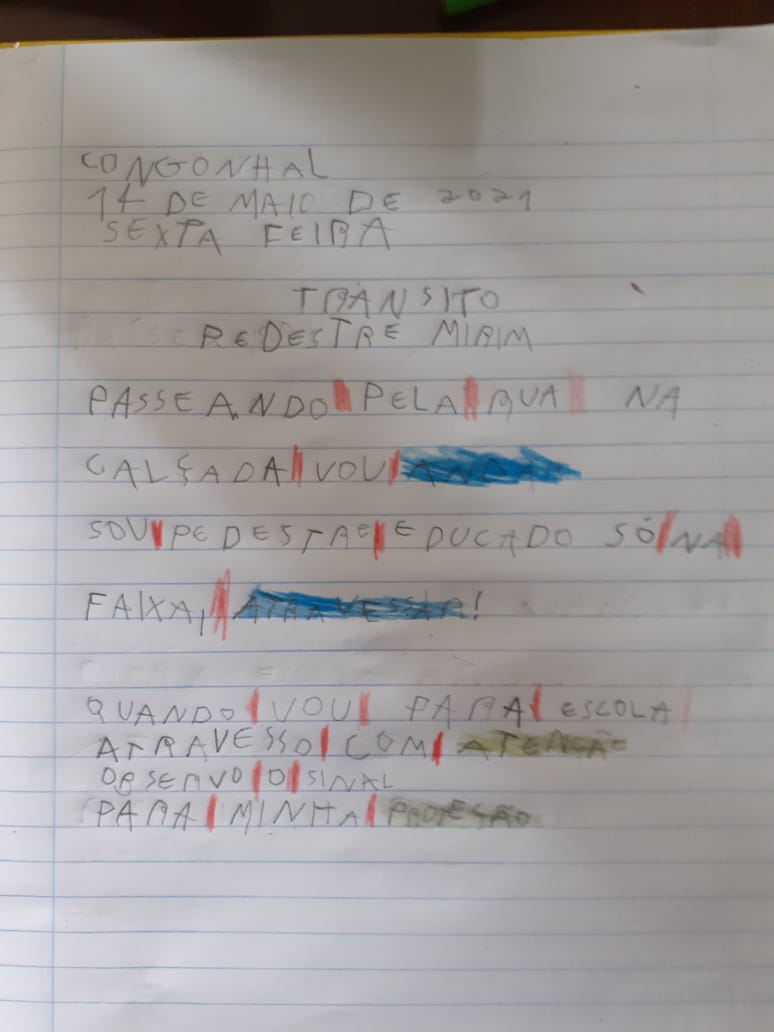 CONGONHAL
14 DE MAIO DE 2021
SEXTA FEIRA
TRÂNSITO
PEDESTRE MIRIM
PASSEANDO PELA RUA NA
CALÇADA VOU ANDAR
SOU PEDESTRE EDUCADO SÓ NA
FAIXA, ATRAVESSAR!
QUANDO VOU PARA ESCOLA
ATRAVESSO COM ATENÇÃO
OBSERVO O SINAL
PARA MINHA PROTEÇÃO